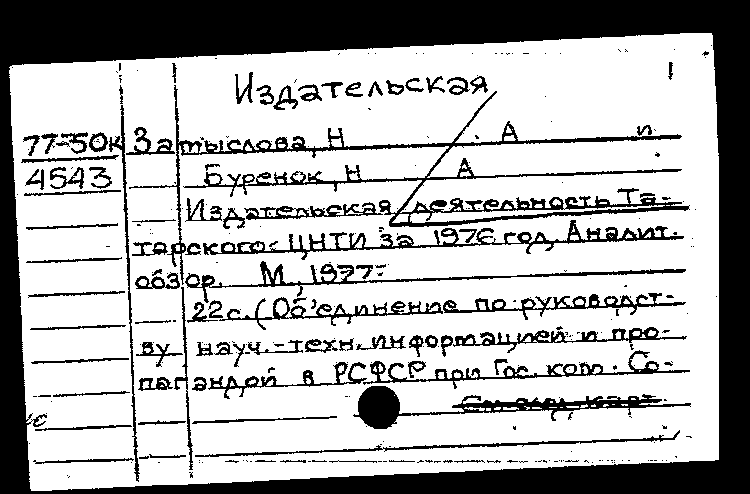 Издательская
1
77-50к Затыслова, Н А и
4543 Буренок, Н А
Издательская деятельность Та-
тарского ЦНТИ за 1976 год. Аналит.
обзор. М., 1977.
22с. (Об'единение по руководст-
ву науч.-техн. информацией и про-
пагандой в РСФСР при Гос. ком. Со-
См. след. карт.